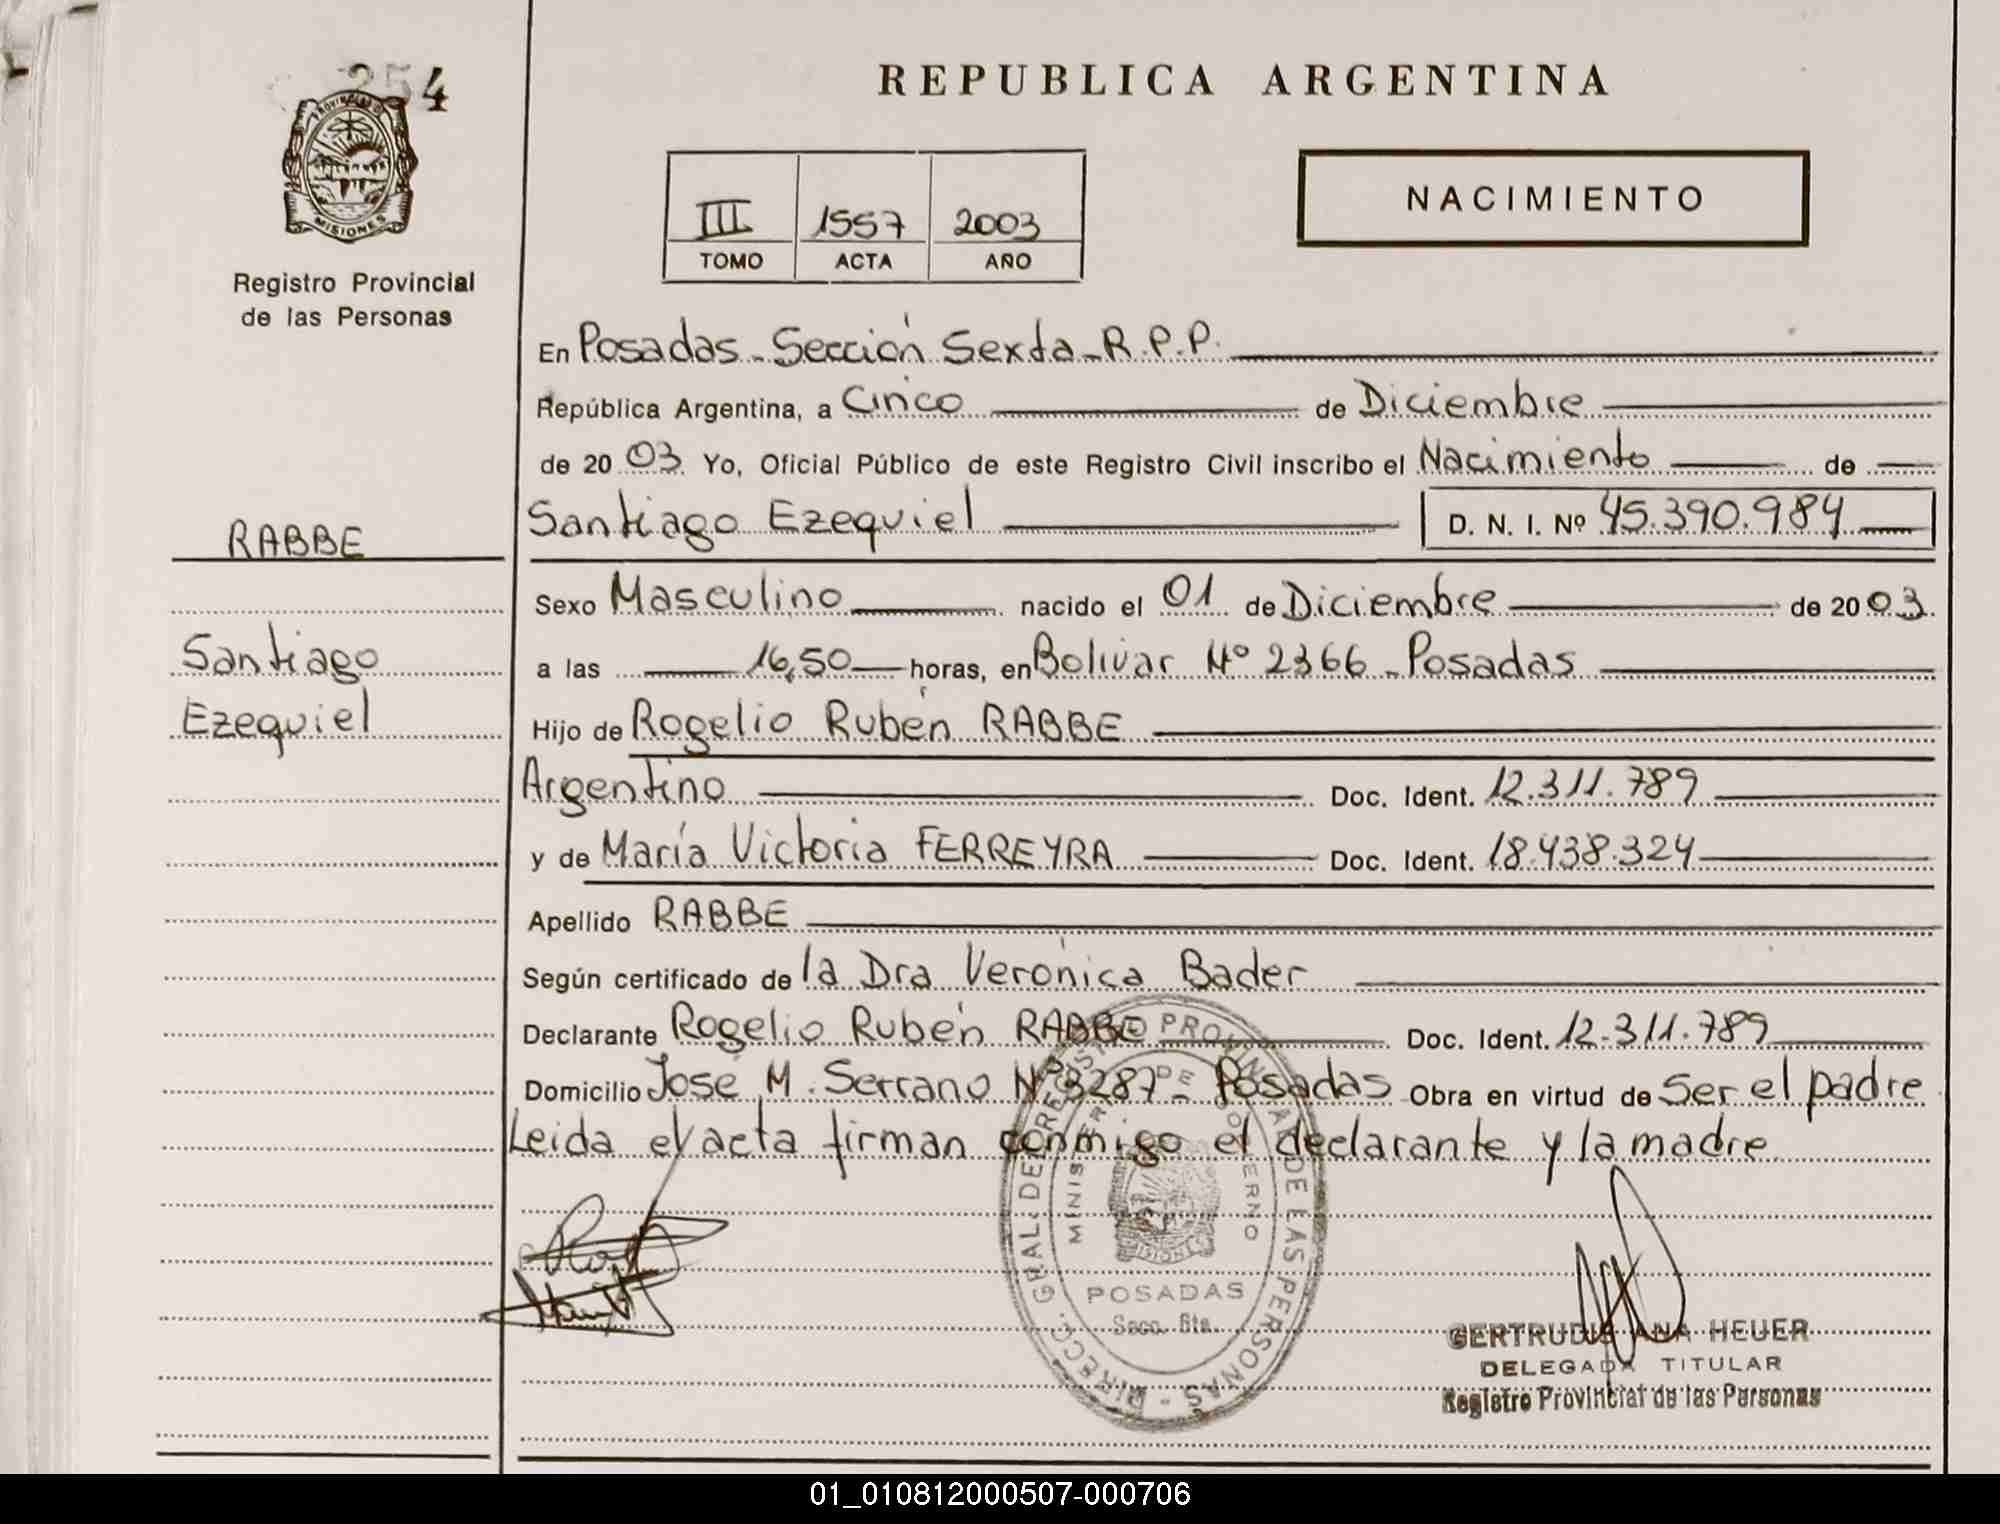 254
PROVINCIA DE
MISIONES
Registro Provincial
de las Personas
REPUBLICA ARGENTINA
III 1557 2003
TOMO ACTA AÑO
NACIMIENTO
En Posadas - Sección Sexta - R.P.P.
República Argentina, a Cinco de Diciembre
de 20 03 Yo, Oficial Público de este Registro Civil inscribo el Nacimiento de
Santiago Ezequiel D. N. I. Nº 45.390.984
RABBE
Sexo Masculino nacido el 01 de Diciembre de 20 03
Santiago
Ezequiel
a las 16,50 horas, en Bolivar Nº 2366 - Posadas
Hijo de Rogelio Rubén RABBE
Argentino Doc. Ident. 12.311.789
y de María Victoria FERREYRA Doc. Ident. 18.438.324
Apellido RABBE
Según certificado de la Dra Verónica Bader
Declarante Rogelio Rubén RABBE Doc. Ident. 12.311.789
Domicilio José M. Serrano Nº 3287 - Posadas Obra en virtud de Ser el padre
Leida el acta firman conmigo el declarante y la madre
DIRECC. GRAL. DEL REGISTRO PROVINCIAL DE LAS PERSONAS
MINISTERIO DE GOBIERNO
MISIONES
POSADAS
Secc. 6ta.
GERTRUDIS ANA HEUER
DELEGADA TITULAR
Registro Provincial de las Personas
01_010812000507-000706